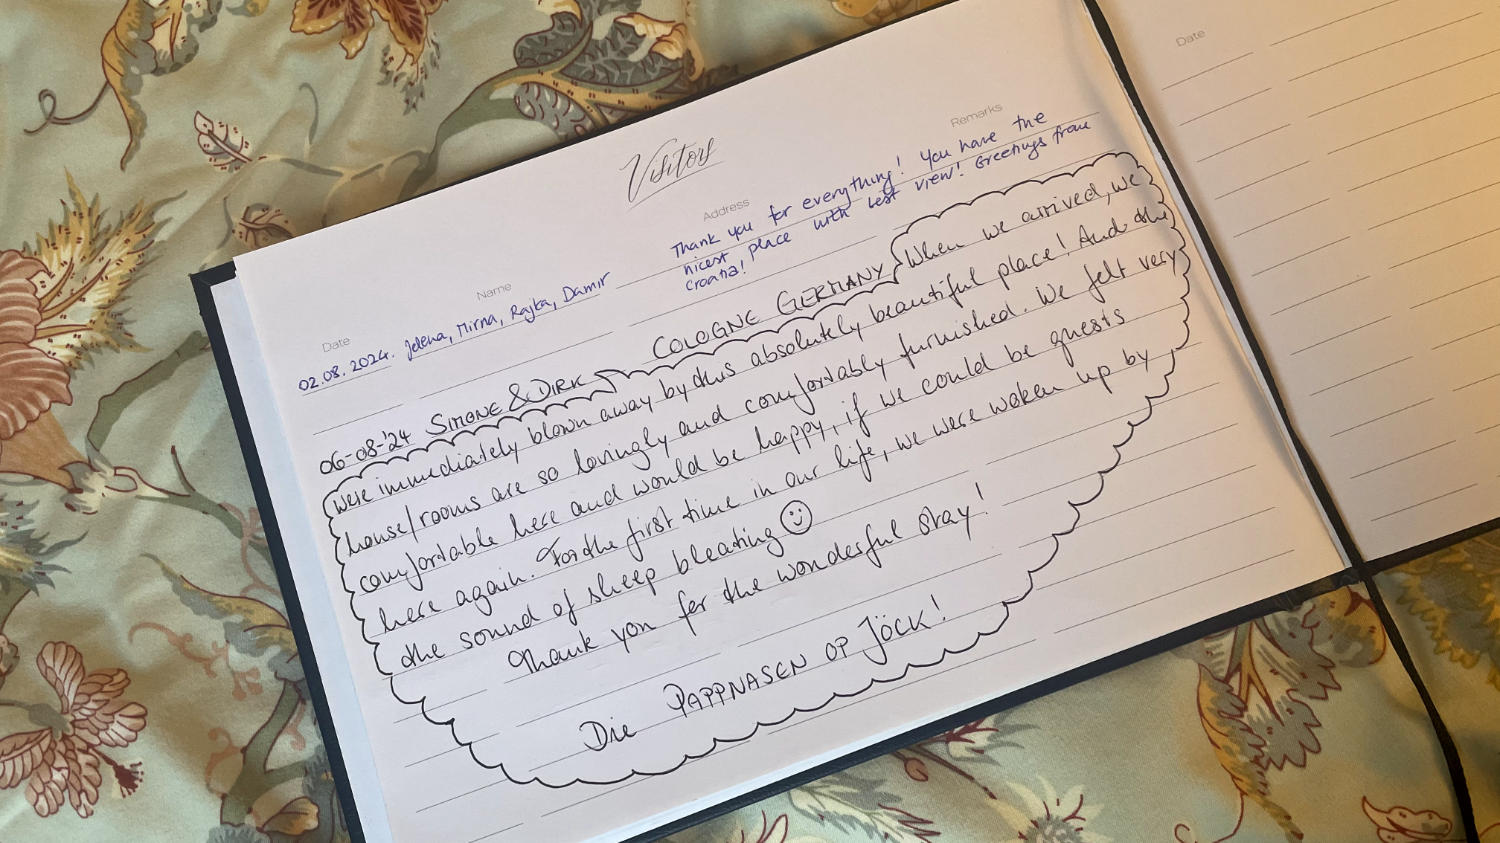 Visitors
Date Name Address Remarks
02.08.2024. Jelena, Mirna, Rajka, Damir
Thank you for everything! You have the
nicest place with best view! Greetings from
Croatia!
06-08-'24 SIMONE & DIRK COLOGNE GERMANY When we arrived, we
were immediately blown away by this absolutely beautiful place! And the
house/rooms are so lovingly and comfortably furnished. We felt very
comfortable here and would be happy, if we could be guests
here again. For the first time in our life, we were woken up by
the sound of sheep bleating ☺
Thank you for the wonderful stay!
Die PAPPNASEN OP JÖCK!
Date